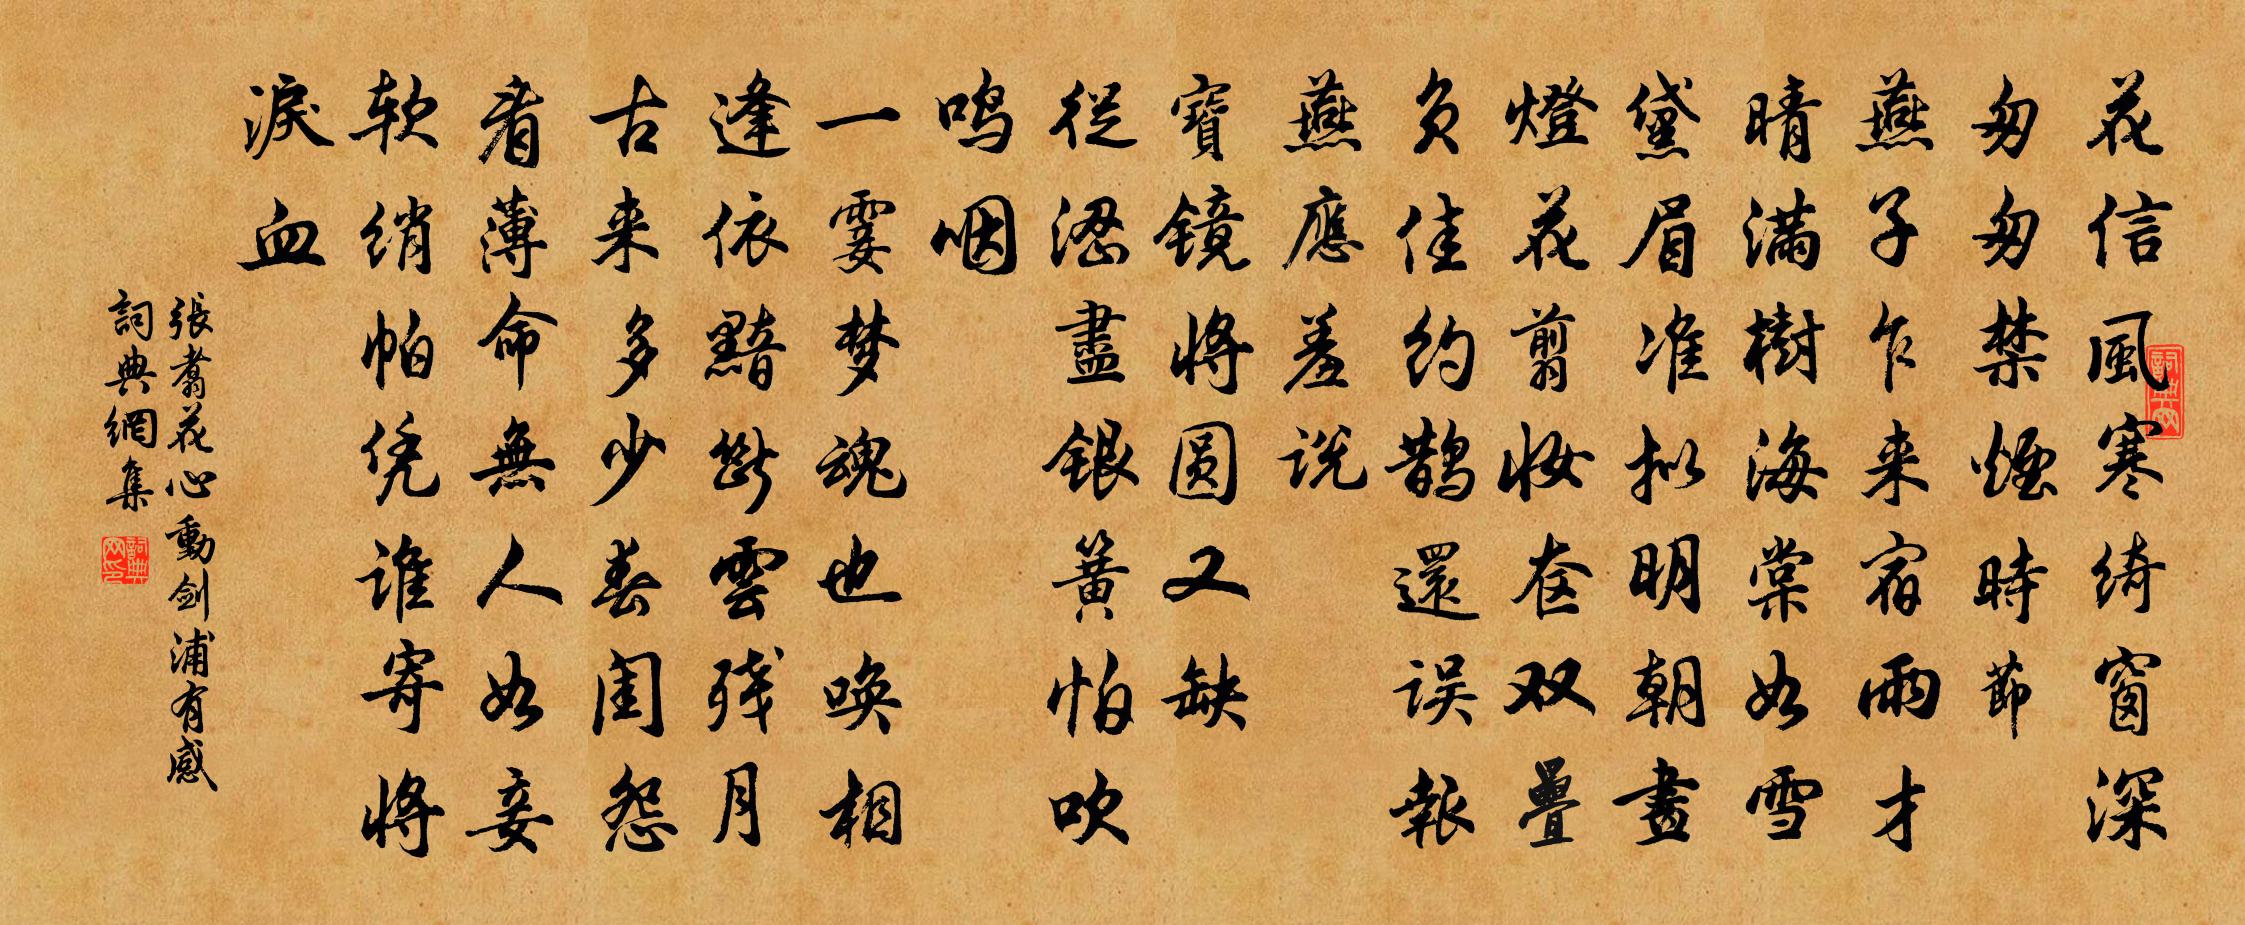 花信風寒綺窗深
匆匆禁煙時節
燕子乍来宿雨才
晴滿樹海棠如雪
黛眉准拟明朝畫
燈花剪妝奁双疊
负佳约鹊還误報
燕應羞说
寶镜將圆又缺
從涩盡银簧怕吹
呜咽
一霎梦魂也唤相
逢依黯断雲残月
古来多少春闺怨
看薄命無人如妾
软绡帕凭谁寄將
淚血
張翥花心動剑浦有感
詞典網集
詞典网
詞典网印